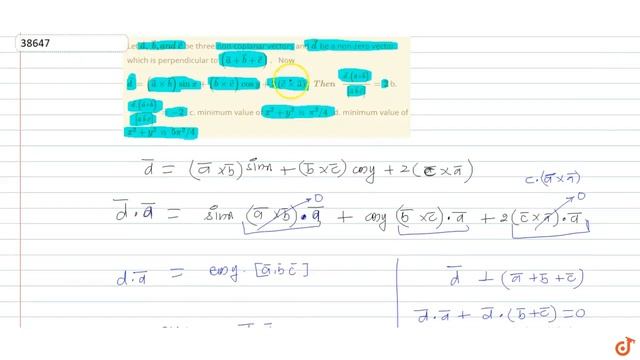 38647
Let a, b, and c be three non coplanar vectors and d be a non zero vector
which is perpendicular to (a + b + c). Now
d = (a × b) sin x + (b × c) cos y + 2(c × a). Then d.(a+b)/[a b c] = 2 b.
d.(a+b)/[a b c] = −2 c. minimum value of x² + y² is π²/4 d. minimum value of
x² + y² is 5π²/4
d̄ = (ā × b̄) sinn + (b̄ × c̄) cosy + 2(c̄ × ā)
c·(ā × ā)
d̄·ā = sinn (ā × b̄)·ā 0 + cosy (b̄ × c̄)·ā + 2(c̄ × ā)·ā 0
d·ā = cosy·[ā b̄ c̄]
d̄ ⊥ (ā + b̄ + c̄)
d̄·ā + d̄·(b̄ + c̄) = 0